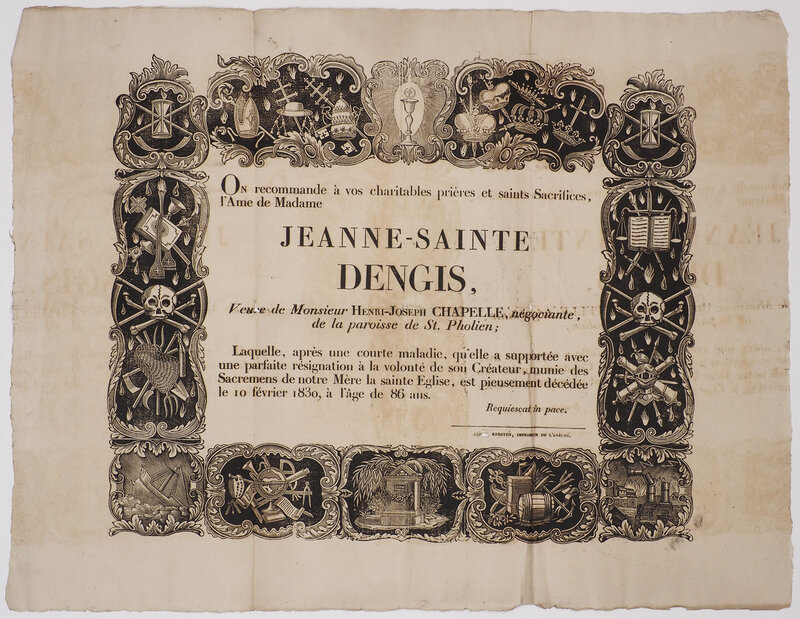 ON recommande à vos charitables prières et saints Sacrifices,
l'Ame de Madame
JEANNE-SAINTE
DENGIS,
Veuve de Monsieur HENRI-JOSEPH CHAPELLE, négociante,
de la paroisse de St. Pholien;
Laquelle, après une courte maladie, qu'elle a supportée avec
une parfaite résignation à la volonté de son Créateur, munie des
Sacremens de notre Mère la sainte Eglise, est pieusement décédée
le 10 février 1830, à l'âge de 86 ans.
Requiescat in pace.
KERSTEN, IMPRIMEUR DE L'EVÊCHÉ.